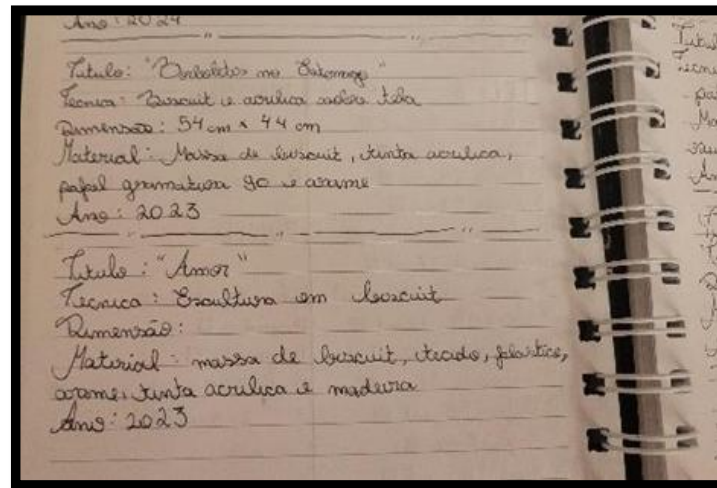 Ano: 2024
Titulo: "Borboletas no Estomago"
Tecnica: Biscuit e acrilica sobre tela
Dimensão: 54 cm x 44 cm
Material: Massa de biscuit, tinta acrilica,
papel gramatura 90 e arame
Ano: 2023
Titulo: "Amor"
Tecnica: Escultura em biscuit
Dimensão:
Material: massa de biscuit, tecido, plastico,
arame, tinta acrilica e madeira
Ano: 2023